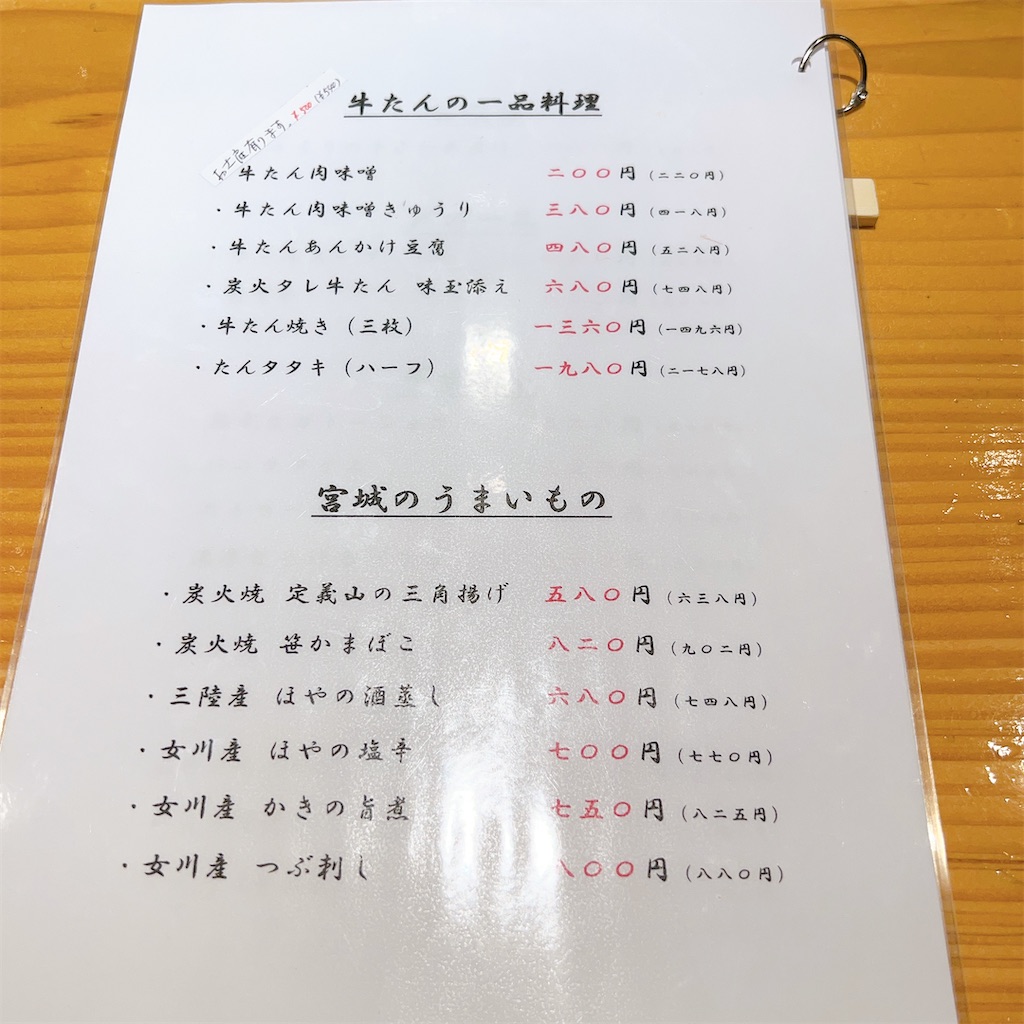 牛たんの一品料理
お土産有り〼。¥500(¥540)
牛たん肉味噌 二〇〇円(二二〇円)
・牛たん肉味噌きゅうり 三八〇円(四一八円)
・牛たんあんかけ豆腐 四八〇円(五二八円)
・炭火タレ牛たん 味玉添え 六八〇円(七四八円)
・牛たん焼き(三枚) 一三六〇円(一四九六円)
・たんタタキ(ハーフ) 一九八〇円(二一七八円)
宮城のうまいもの
・炭火焼 定義山の三角揚げ 五八〇円(六三八円)
・炭火焼 笹かまぼこ 八二〇円(九〇二円)
・三陸産 ほやの酒蒸し 六八〇円(七四八円)
・女川産 ほやの塩辛 七〇〇円(七七〇円)
・女川産 かきの旨煮 七五〇円(八二五円)
・女川産 つぶ刺し 八〇〇円(八八〇円)